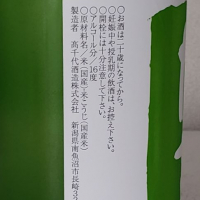 ○お酒は二十歳になってから。
○妊娠中や授乳期の飲酒は、お控え下さい。
○開栓には十分注意して下さい。
○アルコール分／16度
○原材料名／米（国産）米こうじ（国産米）
製造者　高千代酒造株式会社
新潟県南魚沼市長崎3